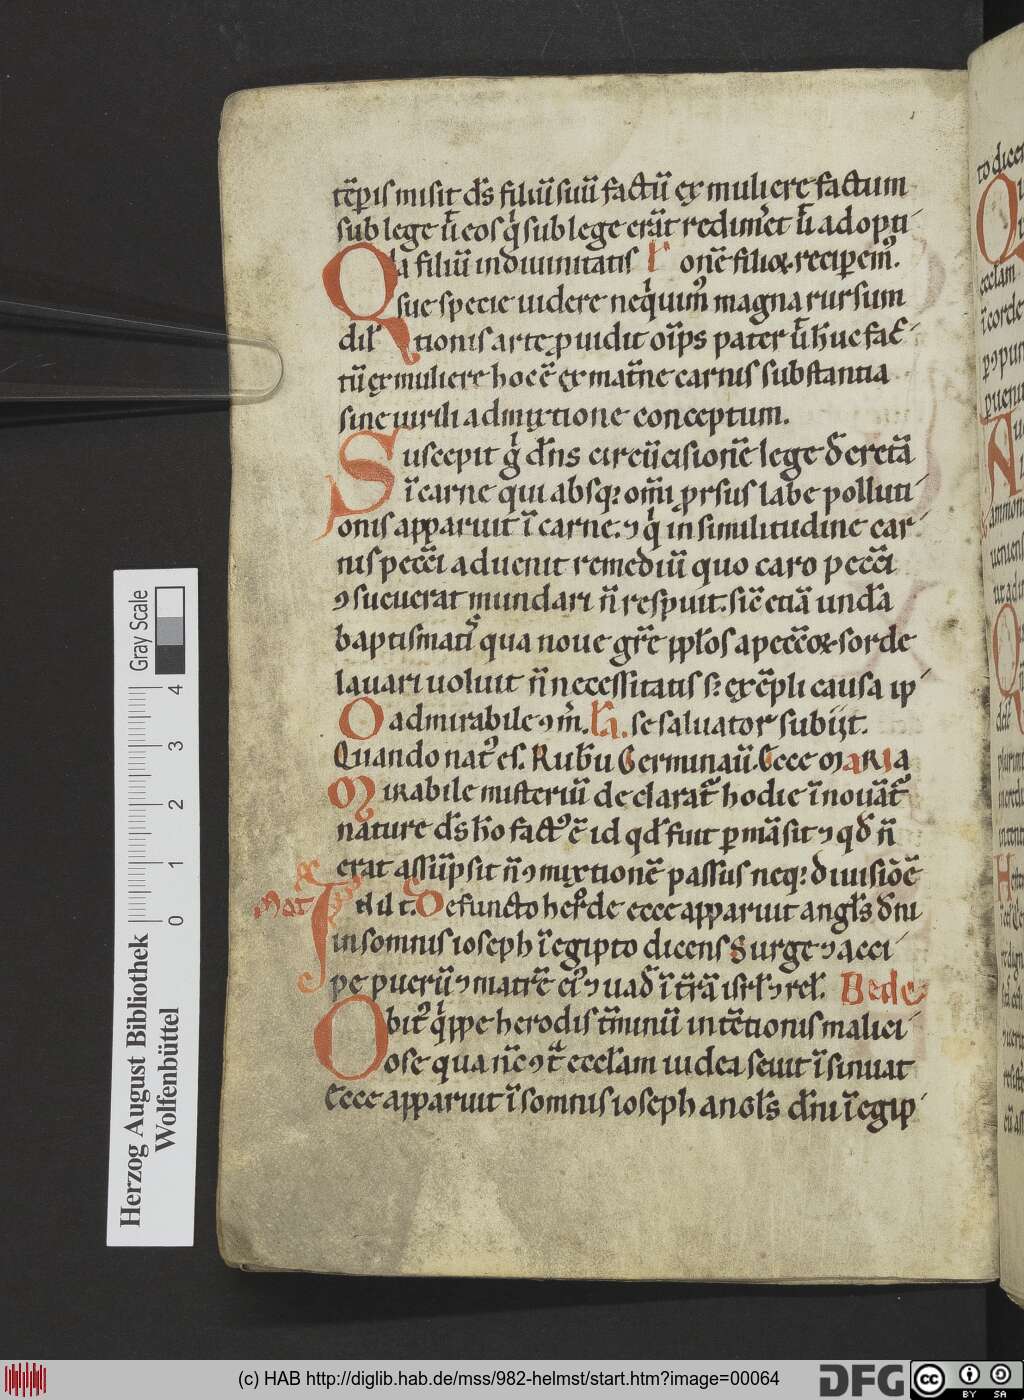 tēꝑis misit ds̄ filiū suū factū ex muliere factum
sub lege ūt eos qͥ sub lege erāt redimͤet ūt adopti
Qia filiū in diuinitatis onē filioꝝ reciperemꝰ.
sue specie uidere nequimꝰ magna rursum
dil tionis arte ꝓuidit oīps pater ūt hūc fac
tū ex muliere hoc ē ex matͤne carnis substantia
sine uirili admixtione conceptum.
Suscepit gͦ dn̄s circūcisionē lege decretā
ī carne qui absqꝫ omī ꝓrsus labe polluti
onis apparuit ī carne. ⁊ qͥ in similitudine car
nis peccī aduenit remediū quo caro peccī
ꝯsueuerat mundari n̄ respuit. sic̄ etiā undā
baptismatꝭ qua noue grē ipp̄los a peccōꝝ sorde
lauari uoluit n̄ necessitatis sꝫ exēpli causa ip
O admirabile ꝯm̄. se saluator subijt.
Quando natꝰ es. Rubū Germinauͥ. Ecce maria
Mirabile misteriū declaratͬ hodie īnouātͬ
nature ds̄ hō factꝰ ē id qd̄ fuit ꝑmāsit ⁊ qd̄ n̄
erat assūpsit n̄ ꝯmixtionē passus neqꝫ diuisiōē
Mat
In il t. Defuncto herͦde ecce apparuit angl̄s dn̄i
in somnis ioseph ī egipto dicens Surge ⁊ acci
pe puerū ⁊ matrē eiꝰ ⁊ uad̄ ī tr̄ā isrl̄ ⁊ rel̄. Bede
Obitꝰ qͥppe herodis tͬminū intētionis malici
ose qua nc̄ ꝯtͣ eccl̄am iudea seuit īsinuat
Ecce apparuit ī somnis ioseph angl̄s dn̄i ī egip
Herzog August Bibliothek
Wolfenbüttel
0 1 2 3 4
Gray Scale
(c) HAB http://diglib.hab.de/mss/982-helmst/start.htm?image=00064
DFG
cc BY SA